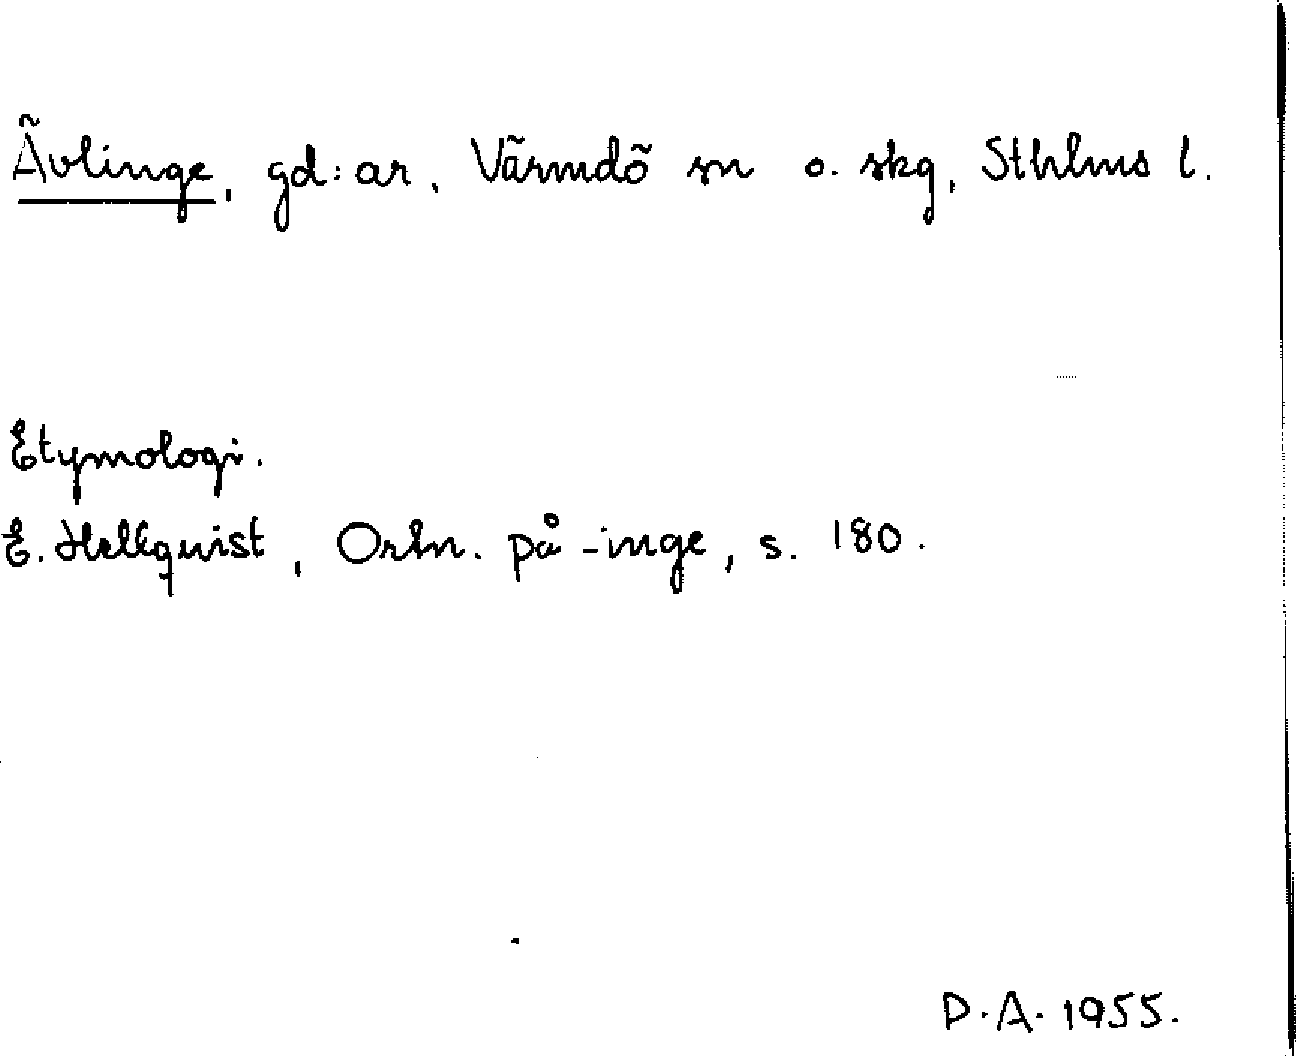 Ävlinge, gd:ar, Värmdö sn o. skg, Sthlms l.
Etymologi.
E. Hellquist, Ortn. på -inge, s. 180.
D.A. 1955.